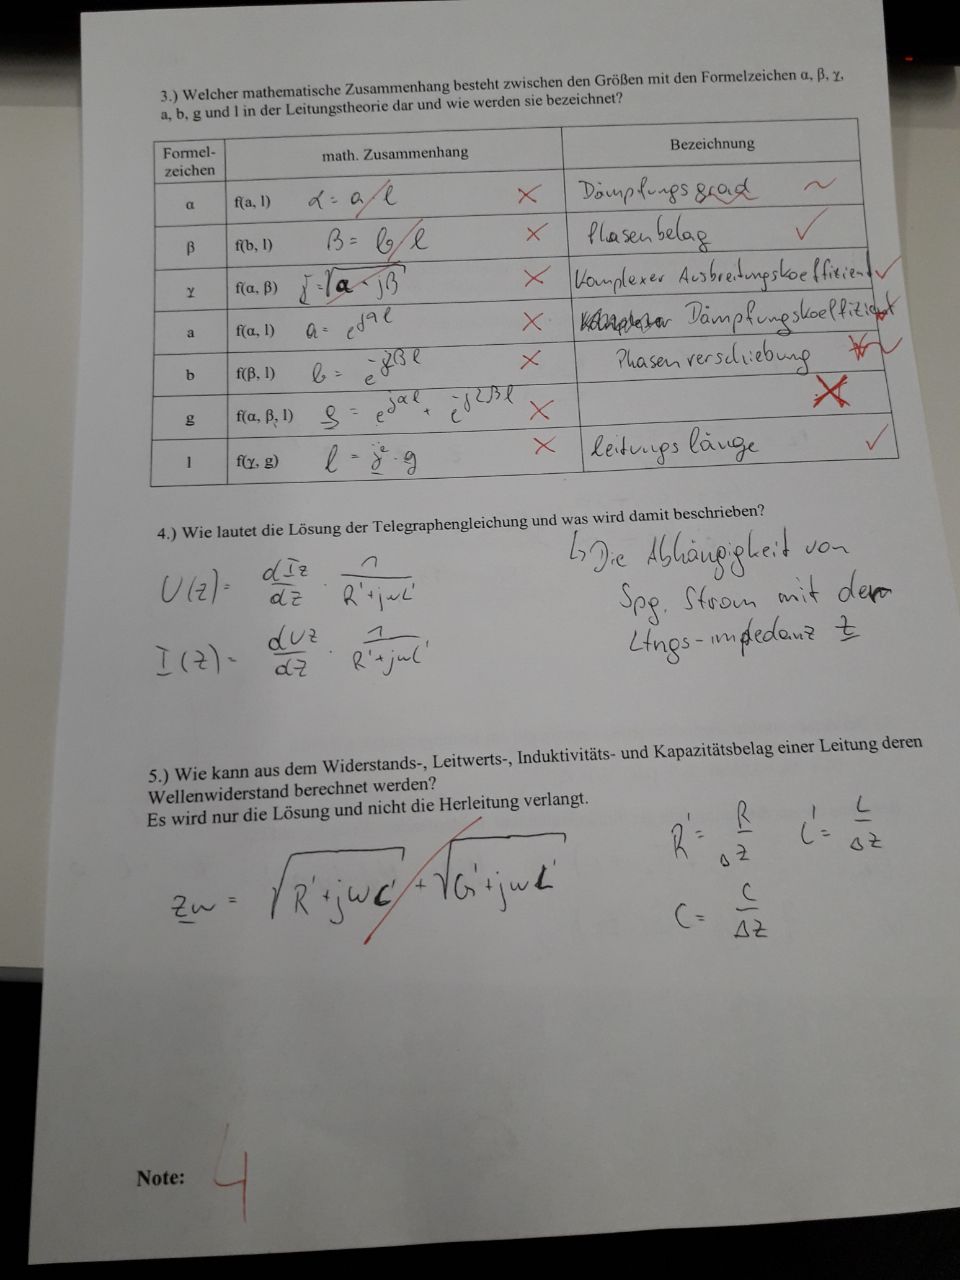 3.) Welcher mathematische Zusammenhang besteht zwischen den Größen mit den Formelzeichen α, β, γ,
a, b, g und l in der Leitungstheorie dar und wie werden sie bezeichnet?
Formel-
zeichen
math. Zusammenhang
Bezeichnung
α f(a, l) α = a/l Dämpfungsgrad
β f(b, l) β = b/l Phasenbelag
γ f(α, β) γ = √α - jβ Komplexer Ausbreitungskoeffizient
a f(α, l) a = e^jαl Dämpfungskoeffizient
b f(β, l) b = e^-jβl Phasenverschiebung
g f(α, β, l) g = e^jαl + e^-j2βl
l f(γ, g) l = · g Leitungslänge
4.) Wie lautet die Lösung der Telegraphengleichung und was wird damit beschrieben?
U(z) = dIz/dz · 1/(R'+jωL')
I(z) = dUz/dz · 1/(R'+jωC')
↳ Die Abhängigkeit von
Spg. Strom mit der
Ltngs-impedanz Z
5.) Wie kann aus dem Widerstands-, Leitwerts-, Induktivitäts- und Kapazitätsbelag einer Leitung deren
Wellenwiderstand berechnet werden?
Es wird nur die Lösung und nicht die Herleitung verlangt.
Zw = √R'+jωC' + √G'+jωL'
R' = R/Δz L' = L/Δz
C = C/Δz
Note: 4